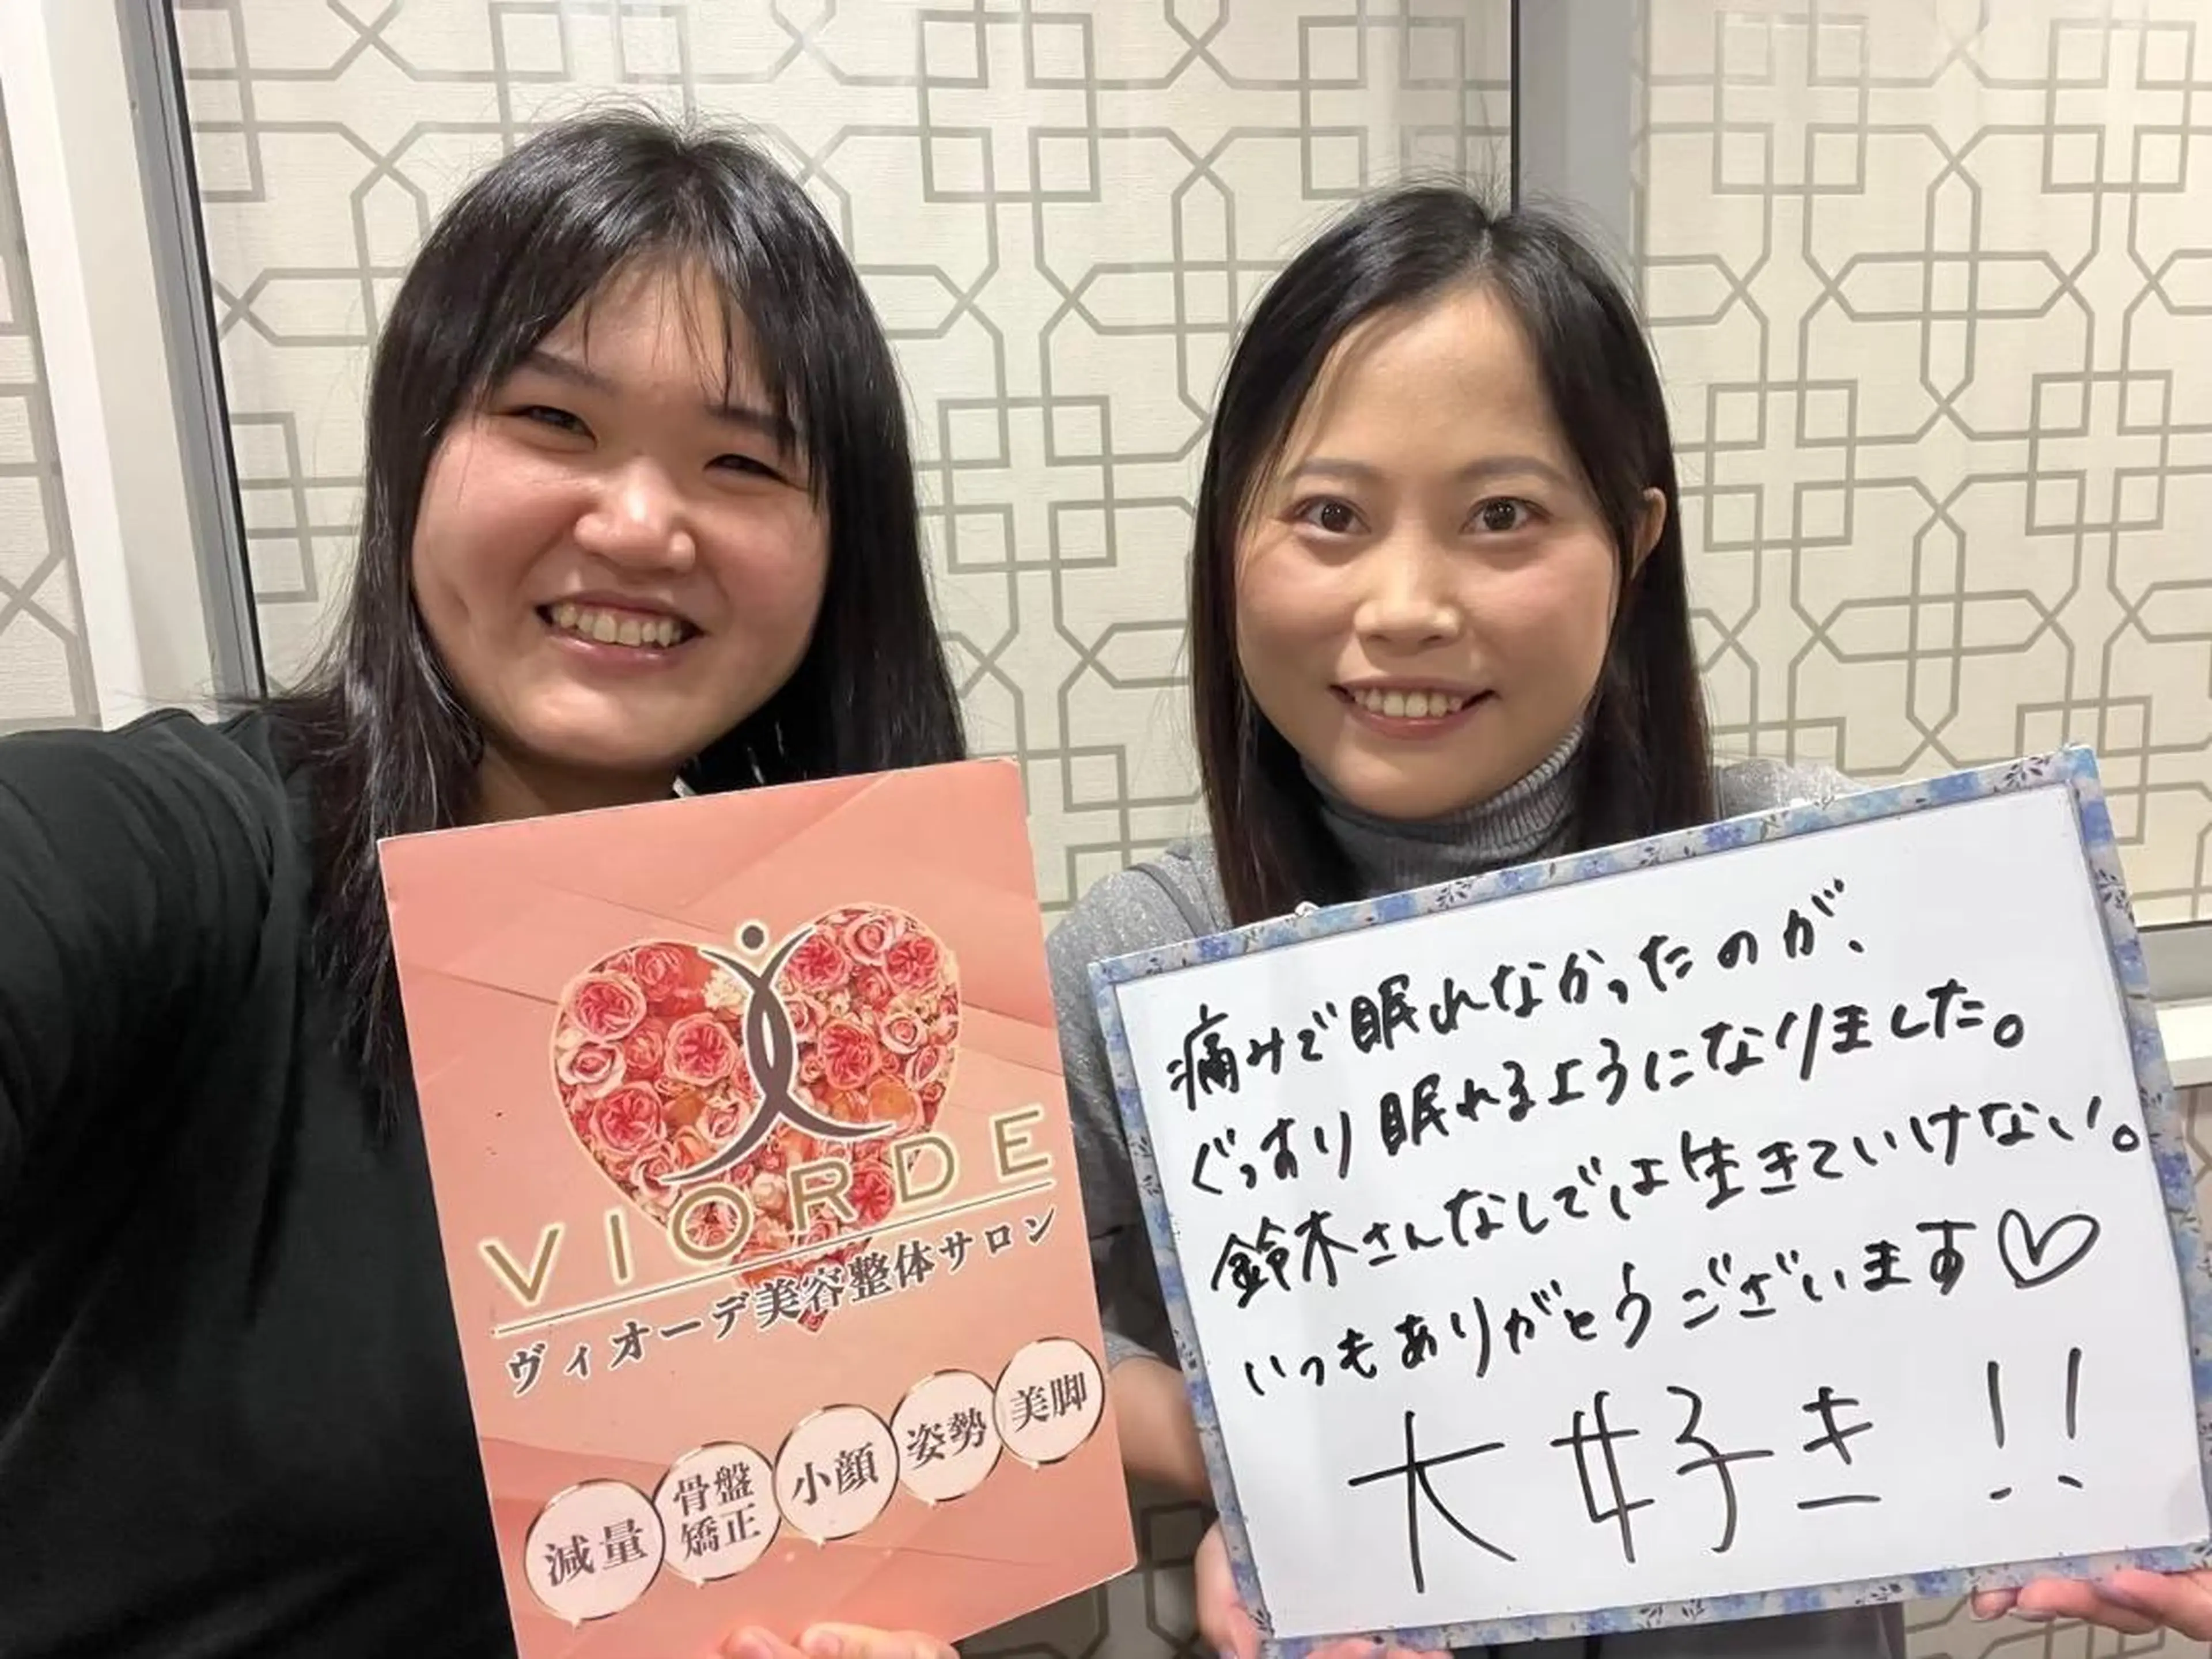 VIORDE
ヴィオーデ美容整体サロン
減量
骨盤
矯正
小顔
姿勢
美脚
痛みで眠れなかったのが、
ぐっすり眠れるようになりました。
鈴木さんなしでは生きていけない。
いつもありがとうございます♡
大好き!!